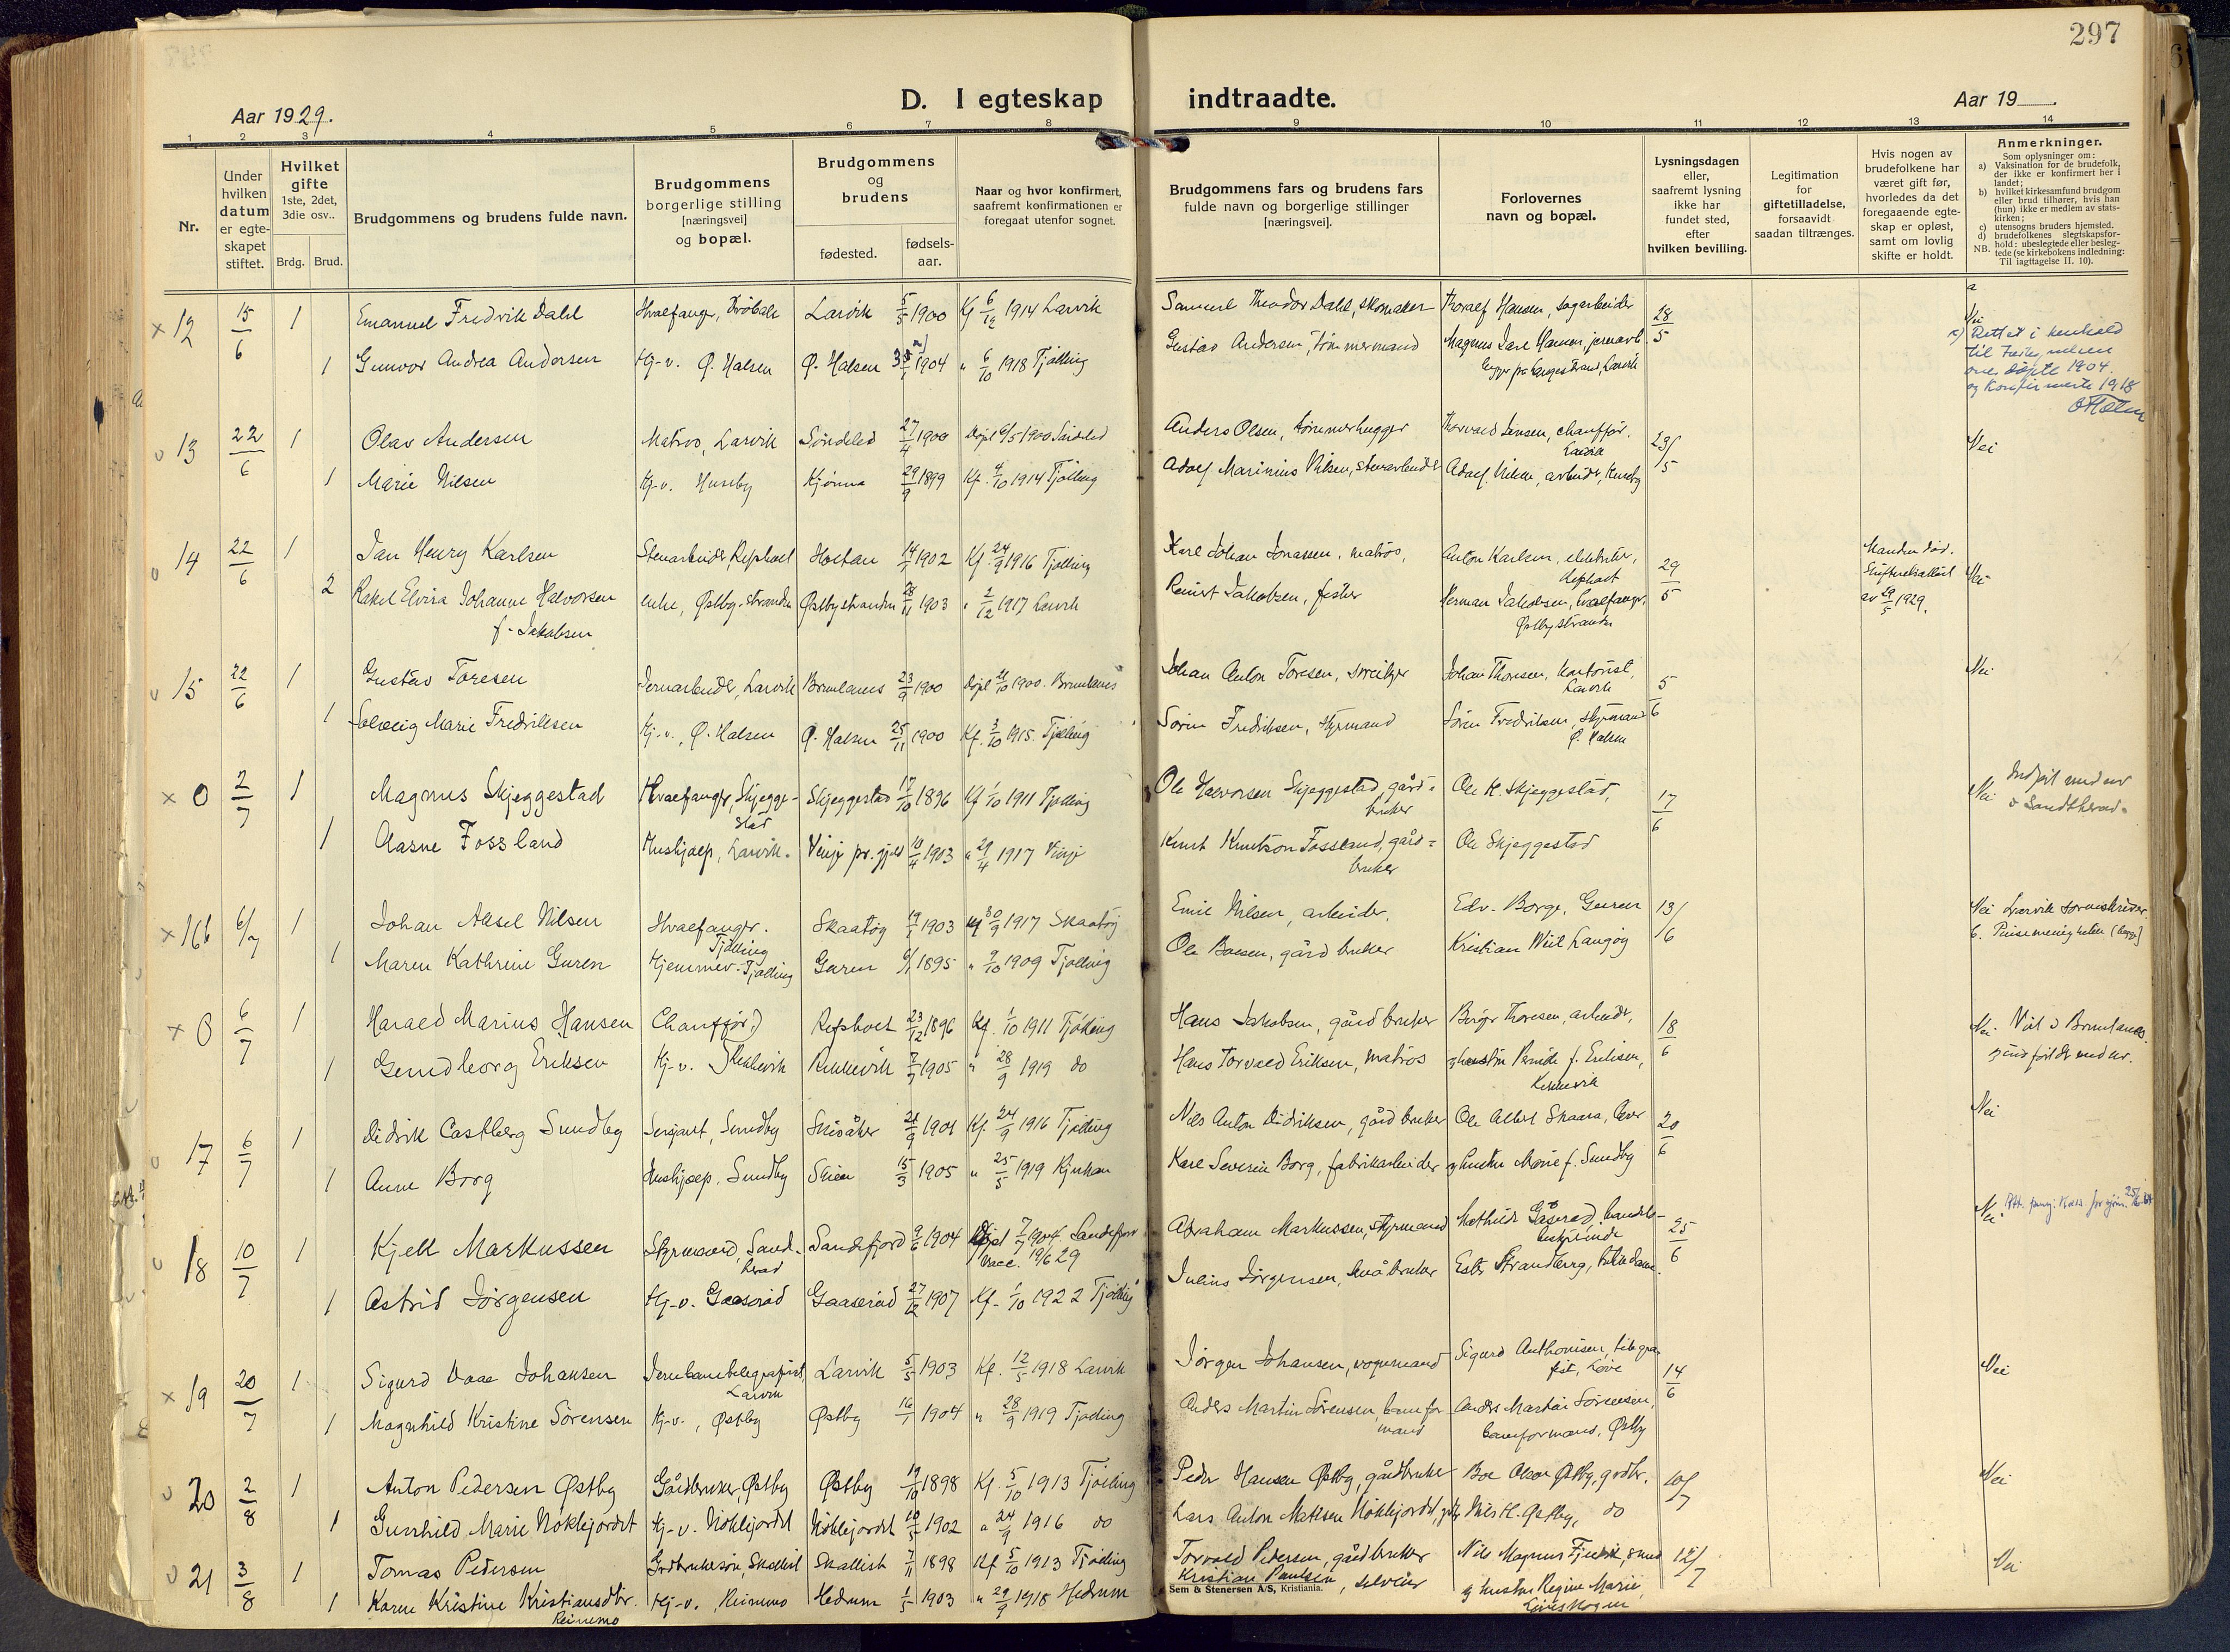 297
D. I egteskap indtraadte.
Aar 1929.
Aar 19
1 2 3 4 5 6 7 8 9 10 11 12 13 14
Nr.
Under hvilken datum er egte-skapet stiftet.
Hvilket gifte 1ste, 2det, 3die osv..
Brdg. Brud.
Brudgommens og brudens fulde navn.
Brudgommens borgerlige stilling [næringsvei] og bopæl.
Brudgommens og brudens
fødested. fødsels-aar.
Naar og hvor konfirmert, saafremt konfirmationen er foregaat utenfor sognet.
Brudgommens fars og brudens fars fulde navn og borgerlige stillinger [næringsvei].
Forlovernes navn og bopæl.
Lysningsdagen eller, saafremt lysning ikke har fundet sted, efter hvilken bevilling.
Legitimation for giftetilladelse, forsaavidt saadan tiltrænges.
Hvis nogen av brudefolkene har været gift før, hvorledes da det foregaaende egte-skap er opløst, samt om lovlig skifte er holdt.
Anmerkninger.
Som oplysninger om:
a) Vaksination for de brudefolk, der ikke er konfirmert her i landet;
b) hvilket kirkesamfund brudgom eller brud tilhører, hvis han (hun) ikke er medlem av stats-kirken;
c) utensogns bruders hjemsted.
d) brudefolkenes slegtskapsfor-hold: ubeslegtede eller besleg-
NB. tede (se kirkebokens indledning: Til iagttagelse II. 10).
x 12 15/6 1 Emanuel Fredrik Dahl Hvalfanger, Larvik 5/5 1900 Kf 6/12 1914 Larvik Samuel Theodor Dahl, skomaker Thoralf Hansen, sagarbeider 28/5 Nei
1 Gunvor Andrea Andersen Hj-v. Ø. Halsen Ø. Halsen 1904 " 6/10 1918 Tjølling Gustav Andersen, tømmermand Magnus Hansen, Larvik
Rettet i henhold til
døpte 1904.
og konfirmerte 1918
13 22/6 1 Olav Andersen Matros, Larvik Søndeled 27/4 1900 Døpt 6/5 1900 Søndeled Anders Olsen, tømmerhugger Thorvald Jensen, chauffør, Larvik 23/5 Nei
1 Marie Nilsen Hj-v. Huseby Kjønnø 29/9 1899 Kf. 4/10 1914 Tjølling Adolf Marinius Nilsen, stenarbeider Adolf Nilsen, arbeider, Huseby
14 22/6 1 Jan Henry Karlsen Stenarbeider, Rephoel Holtan 14/1 1902 Kf. 24/9 1916 Tjølling Karl Johan Jonassen, matros, Anton Karlsen, 29/5 Manden død. Nei
2 Rakel Elvira Johanne Halvorsen f. Jakobsen enke, Østby-stranden Østbystranden 28/11 1903 " 2/12 1917 Larvik Reinert Jakobsen, fisker Herman Jakobsen, hvalfanger, Østbystranden av 29/5 1929.
15 22/6 1 Gustav Toresen Jernarbeider, Larvik Brunlanes 23/9 1900 Døpt 21/10 1900. Brunlanes Johan Anton Toresen, Johan Thoresen, kontorist, Larvik 5/6 Nei
1 Solveig Marie Fredriksen Hj-v., Ø. Halsen Ø. Halsen 25/11 1900 Kf. 3/10 1915. Tjølling Sørin Fredriksen, styrmand Søren Fredriksen, styrmand Ø. Halsen
x 0 2/7 1 Magnus Skjeggestad Hvalfanger, Skjegge-stad Skjeggestad 17/10 1896 Kf 1/10 1911 Tjølling Ole Halvorsen Skjeggestad, gård-bruker Ole H. Skjeggestad, 17/6 Nei
1 Aasne Fossland Hushjælp, Larvik. Vinje pr.gjeld 10/4 1903 " 29/4 1917 Vinje Knut Knutson Fossland, gård-bruker Ole Skjeggestad
x 16b 6/7 1 Johan Aksel Nilsen Hvalfanger. Tjølling Skaatøy 19/2 1903 Kf 30/9 1917 Skaatøy Emil Nilsen, arbeider, Edv. Borge, Guren 13/6 Nei Larvik
1 Maren Kathrine Guren Hjemmev. Tjølling Guren 1895 " 9/10 1909 Tjølling Ole Boesen, gård bruker Kristian Wiil Langøy
x 0 6/7 1 Harald Marius Hansen Chauffør Rephoel 23/12 1896 Kf. 1/10 1911 Tjølling Hans Jakobsen, gård bruker Birger Thoresen, arbeider, 18/6 Nei. Viet i Brunlanes
1 Gundborg Eriksen Hj-v. 1905 " 28/9 1919 do Hans Torvald Eriksen, matros f. Eriksen,
17 6/7 1 Didrik Castberg Sundby Sersjant, Sundby Skisåker 1901 Kf. 24/9 1916 Tjølling Nils Anton Didriksen, gård bruker Ole Albert Skaara, 20/6 Nei
1 Anne Borg Hushjælp, Sundby Skien 15/3 1905 " 25/5 1919 Rjukan Karl Severin Borg, fabrikarbeider og hustru Marie f. Sundby
18 10/7 1 Kjell Markussen Styrmand, Sand-herad Sandefjord 9/6 1904 Døpt 7/7 1904. Sandefjord Vacc. 19/6 29 Abraham Markussen, styrmand Mathilde Gåserød, handels- 25/6 Nei
1 Astrid Jørgensen Hj-v. Gaaserød Gaaserød 27/12 1907 Kf. 1/10 1922 Tjølling Julius Jørgensen, småbruker Ester Strandberg,
x 19 20/7 1 Sigurd Vaae Johansen Jernbanetelegrafist, Larvik Larvik 5/5 1903 Kf. 12/5 1918 Larvik Jørgen Johansen, vognmand Sigurd Anthonisen, telegra-fist, 14/6 Nei
1 Magnhild Kristine Sørensen Hj-v., Østby Østby 16/1 1904 " 28/9 1919 Tjølling Anders Martin Sørensen, baneformand Anders Martin Sørensen, baneformand, Østby
20 2/8 1 Anton Pedersen Østby Gårdbruker, Østby Østby 19/10 1898 Kf. 5/10 1913 Tjølling Peder Hansen Østby, gårdbruker Boe Olson Østby, grdbr. 10/7 Nei
1 Gunhild Marie Nøklejordet Hj-v. Nøklegjordet Nøklejordet 10/5 1902 " 24/9 1916 do Lars Anton Mattisen Nøklejordet, Nils H. Østby, do
21 3/8 1 Tomas Pedersen Grdbrukersøn, Skallist Skallist 7/11 1898 Kf 5/10 1913 Tjølling Torvald Pedersen, gårdbruker Nils Magnus 12/7 Nei
1 Karen Kristine Kristiansdtr. Reinemo Hj-v., Reinemo Hedrum 1/5 1903 " 29/9 1918 Hedrum Kristian Paulsen, og hustru Regine Marie,
Sem & Stenersen A/S, Kristiania.